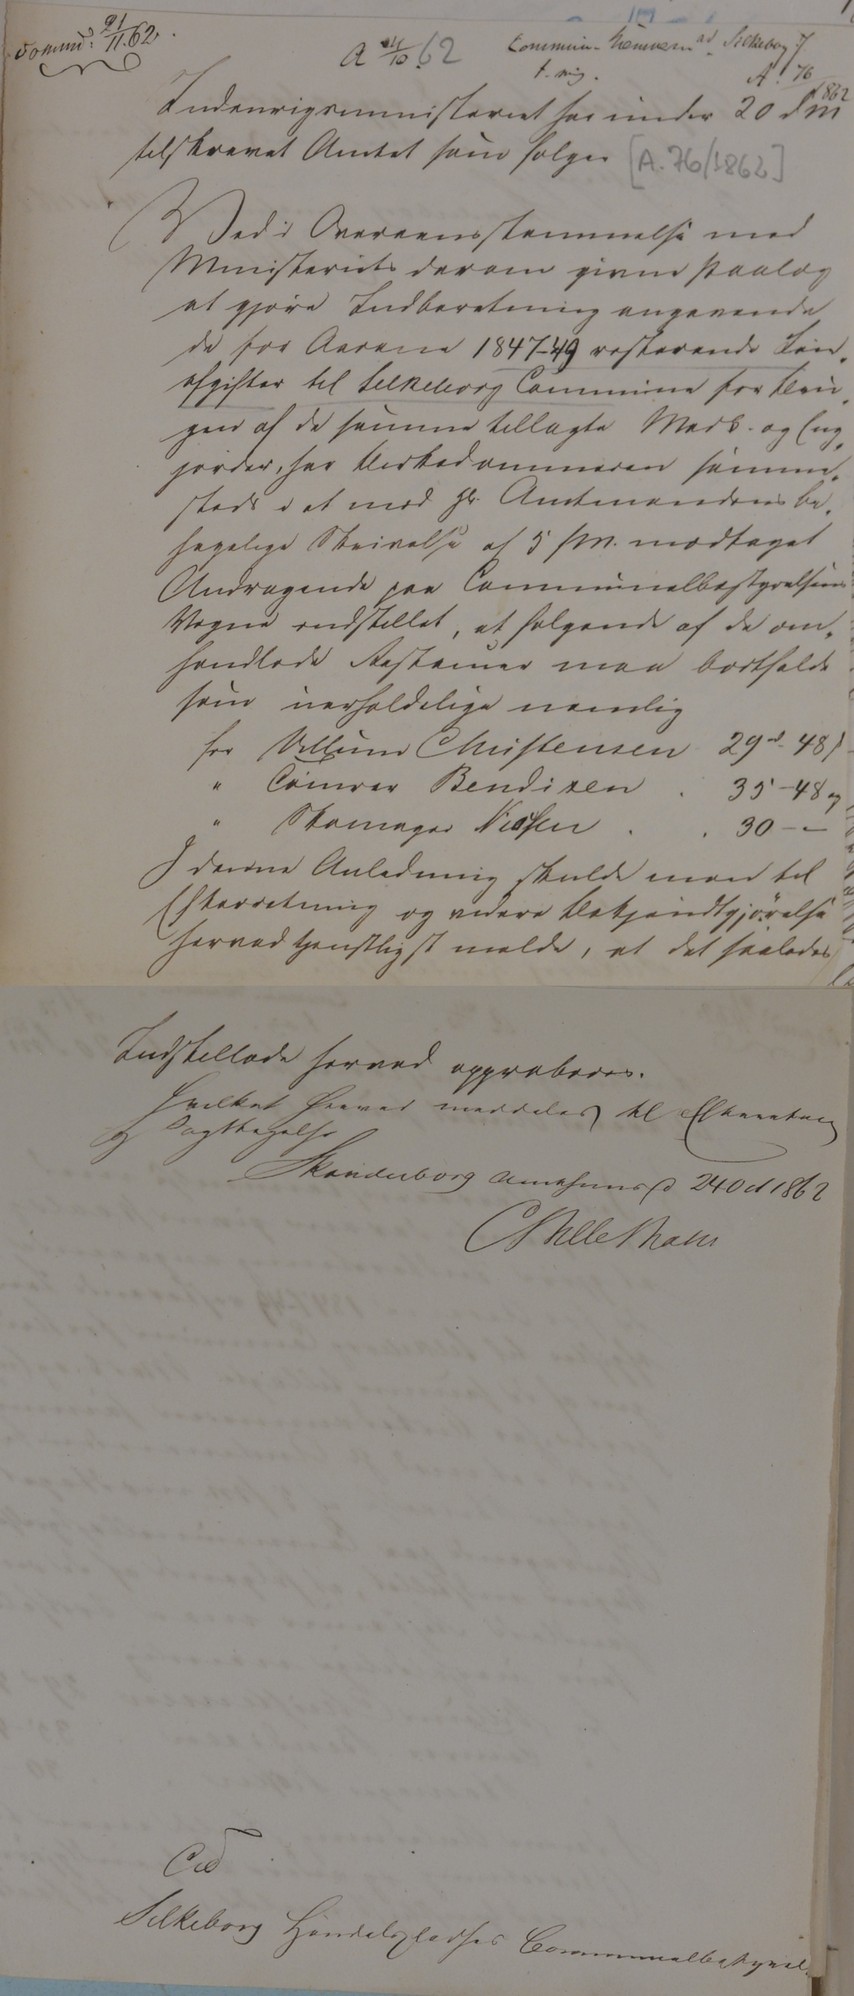 Comm: 21/11.62.
A 24/10.62
Silkeborg
t. mig.
A. 76
1862
Indenrigsministeriet har under 20 d M
tilskrevet Amtet som følger [A.76/1862]
Ved i Overeensstemmelse med
Ministeriets derom givne Paalæg
at gjøre Indberetning angaaende
de for Aarene 1847-49 resterende
afgifter til Silkeborg Commune for
gen af de samme tillagte Mark- og Eng
jorder, har Birkedommeren samme
steds i et med Hr. Amtmandens be
hagelige Skrivelse af 5 f.M. modtaget
Andragende paa Communalbestyrelsens
Vegne indstillet, at følgende af de om
handlede Restancer maa bortfalde
som uerholdelige nemlig
for Villum Christensen 29 rd 48 s
" Bendixen . 35 - 48 "
" Skomager Nielsen . . 30 - "
I denne Anledning skulde man til
Efterretning og videre Bekjendtgjørelse
herved tjenstligst melde, at det saaledes
Indstillede herved approberes.
Hvilket herved meddeles til Efterretning
og Iagttagelse
Skanderborg Amthuus d 24 Oct 1862
Til
Silkeborg Handelsplads's Communalbestyrel.